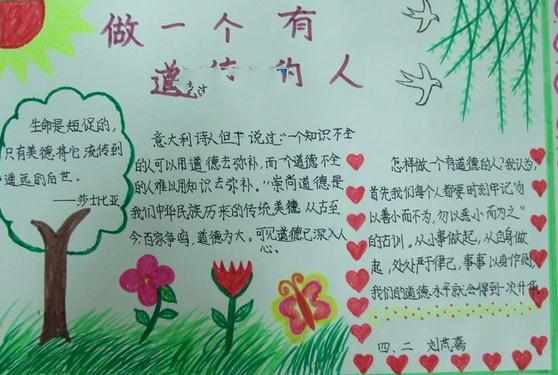 做一个有
道德的人
生命是短促的，
只有美德将它流传到
遥远的后世。
——莎士比亚
意大利诗人但丁说过："一个知识不全
的人可以用道德去弥补，而一个道德不全
的人难以用知识去弥补。"崇尚道德是
我们中华民族历来的传统美德，从古至
今百家争鸣，道德为大。可见道德已深入人
心。
怎样做一个有道德的人？我认为，
首先我们每个人都要时刻牢记"勿
以善小而不为，勿以恶小而为之"
的古训，从小事做起，从自身做
起，处处严于律己，事事以身作则，
我们的道德水平就会得到一次升华。
四、二 刘